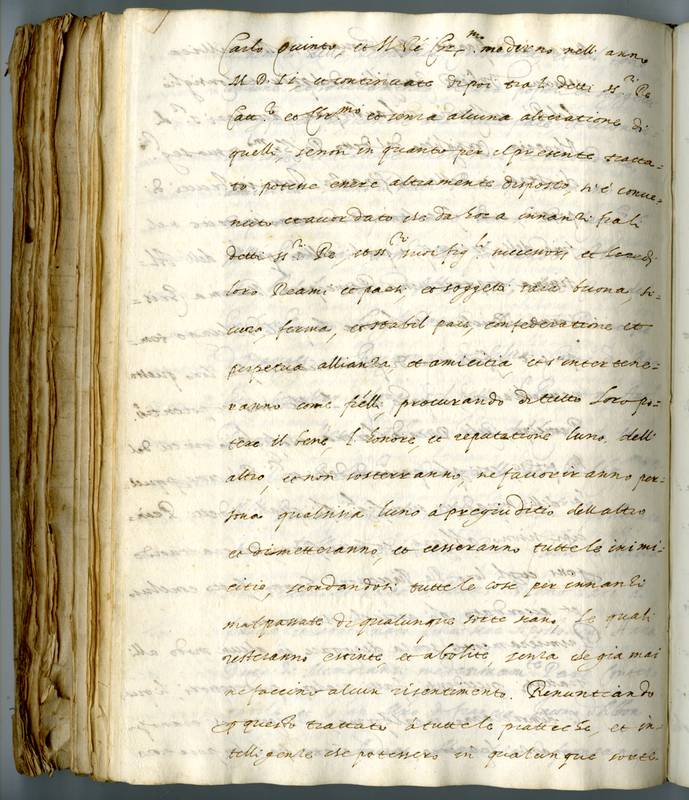 Carlo Quinto, et Il Rè Chr.mo moderno nell' anno
M D Li et continuate dipoi tra li detti SS.ri Re
Catt.co et Chr.mo et senza alcuna alteratione di
quelli, senon in quanto per il presente tratta-
to potesse essere altramente disposto, si è conue-
nuto et accordato che da hora innanzi fra li
detti SS.ri Re et SS.ri suoi figli successori et heredi
loro Reami et paesi, et soggetti sarà buona, si-
cura, ferma, et stabil pace, confederatione et
perpetua allianza, et amicitia et s'intertene-
ranno come fr̃elli, procurando di tutto loro po-
tere il bene, l' honore, et reputatione luno dell'
altro, et non sosterranno, ne fauoriranno per-
sona qualsisia luno à pregiuditio dell altro
et dimetteranno, et cesseranno tutte le inimi-
citie, scordandosi tutte le cose per innanzi
mal passate di qualunque sorte siano, le quali
resteranno estinte, et abolite, senza che gia mai
ne faccino alcun risentimento. Renuntiando
p questo trattato à tutte le prattiche, et in-
telligenze che potessero in qualunque sorte